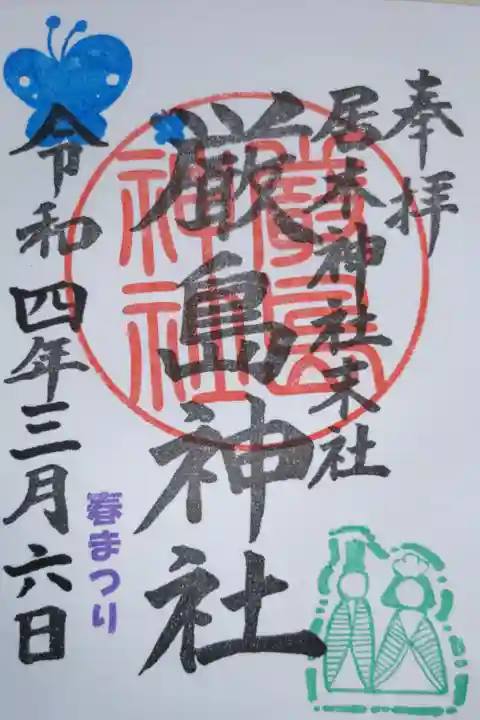 奉拝
居木神社末社
厳島神社
厳島
神社
令和四年三月六日
春まつり